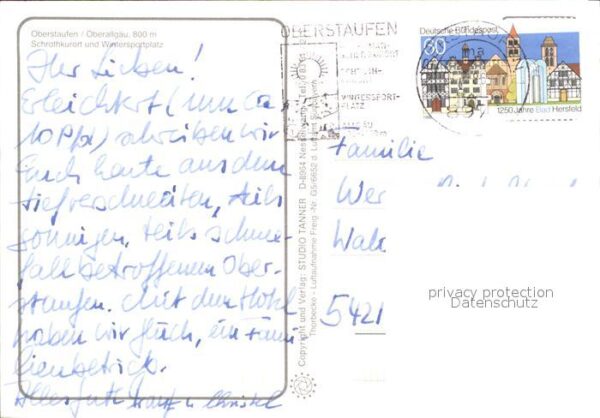 Oberstaufen / Oberallgäu, 800 m
Schrothkurort und Wintersportplatz
Ihr Lieben!
Erleichtert (um ca
10 Pfd) schreiben wir
Euch heute aus dem
tiefverschneiten, teils
sonnigen, teils schnee-
fallbetroffenem Ober-
staufen. Mit dem Hotel
haben wir Glück, ein Fami-
lienbetrieb.
Alles Gute
Christel
Copyright und Verlag: STUDIO TANNER D-8964 Nesselwang
Thorbecke - Luftaufnahme Freig.-Nr.
OBERSTAUFEN
WINTERSPORT-
PLATZ
Deutsche Bundespost
60
1250 Jahre Bad Hersfeld
Familie
Wer
Wal
5421
privacy protection
Datenschutz